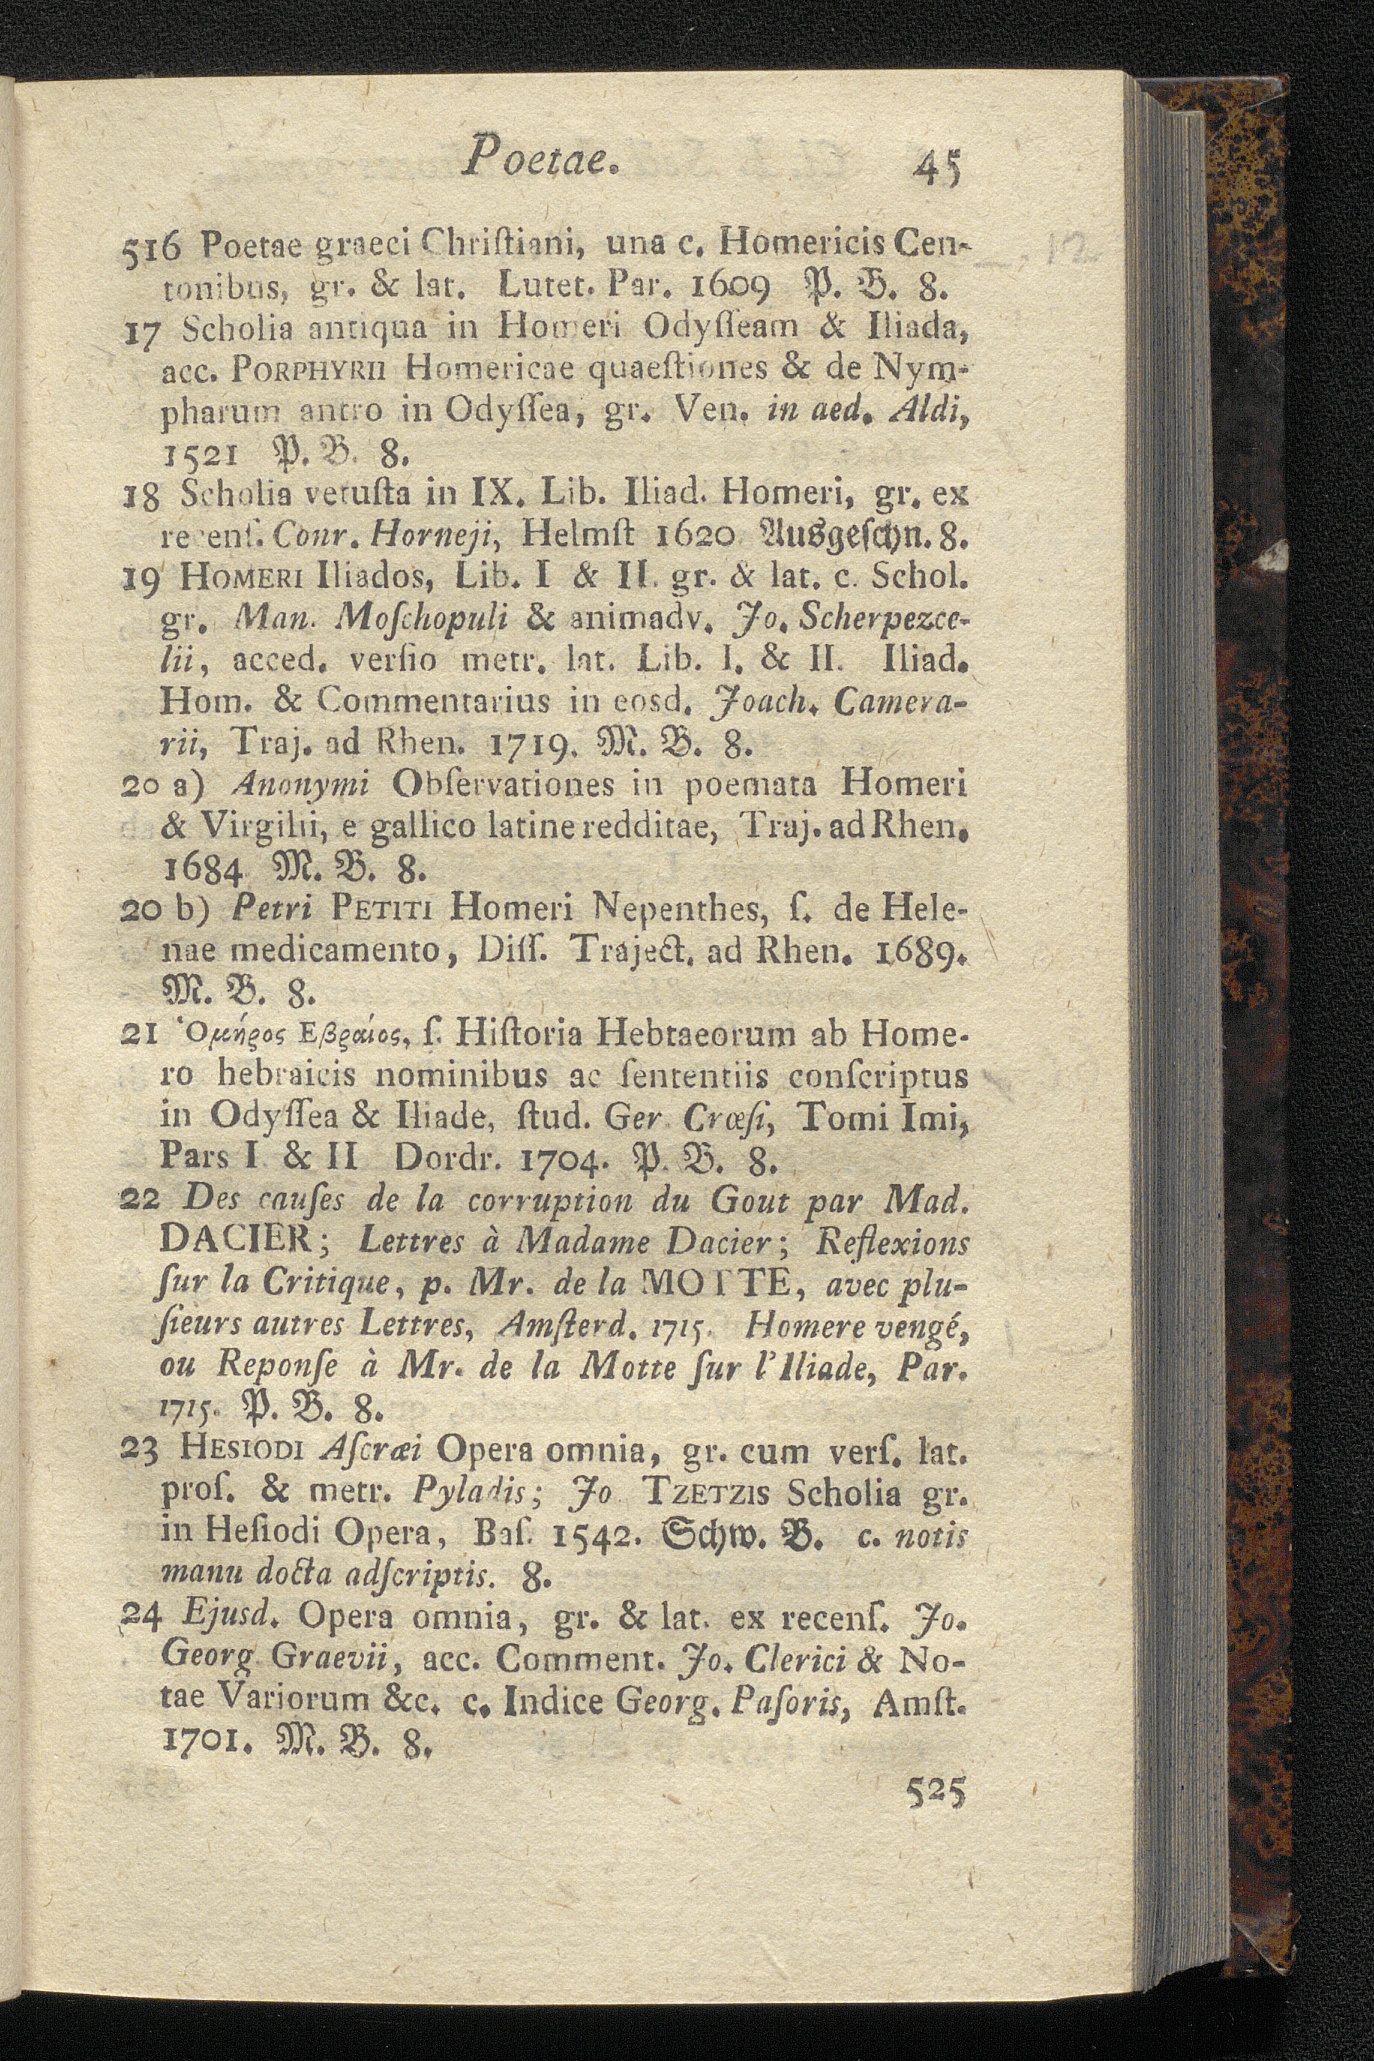 Poetae. 45
516 Poetae graeci Chriſtiani, una c. Homericis Cen-
tonibus, gr. & lat. Lutet. Par. 1609 P. B. 8.
17 Scholia antiqua in Homeri Odyſſeam & Iliada,
acc. PORPHYRII Homericae quaeſtiones & de Nym-
pharum antro in Odyſſea, gr. Ven. in aed. Aldi,
1521 P. B. 8.
18 Scholia vetuſta in IX. Lib. Iliad. Homeri, gr. ex
recenſ. Conr. Horneji, Helmſt 1620 Ausgeſchn. 8.
19 HOMERI Iliados, Lib. I & II. gr. & lat. c. Schol.
gr. Man. Moſchopuli & animadv. Jo. Scherpezee-
lii, acced. verſio metr. lat. Lib. I. & II. Iliad.
Hom. & Commentarius in eosd. Joach. Camera-
rii, Traj. ad Rhen. 1719. M. B. 8.
20 a) Anonymi Obſervationes in poemata Homeri
& Virgilii, e gallico latine redditae, Traj. ad Rhen.
1684 M. B. 8.
20 b) Petri PETITI Homeri Nepenthes, ſ. de Hele-
nae medicamento, Diſſ. Traject. ad Rhen. 1689.
M. B. 8.
21 Ὁμήρος Εβραίος, ſ. Hiſtoria Hebtaeorum ab Home-
ro hebraicis nominibus ac ſententiis conſcriptus
in Odyſſea & Iliade, ſtud. Ger. Crœſi, Tomi Imi,
Pars I & II Dordr. 1704. P. B. 8.
22 Des cauſes de la corruption du Gout par Mad.
DACIER; Lettres à Madame Dacier; Reflexions
ſur la Critique, p. Mr. de la MOTTE, avec plu-
ſieurs autres Lettres, Amſterd. 1715. Homere vengé,
ou Reponſe à Mr. de la Motte ſur l'Iliade, Par.
1715. P. B. 8.
23 HESIODI Aſcræi Opera omnia, gr. cum verſ. lat.
proſ. & metr. Pyladis; Jo TZETZIS Scholia gr.
in Heſiodi Opera, Baſ. 1542. Schw. B. c. notis
manu docta adſcriptis. 8.
24 Ejusd. Opera omnia, gr. & lat. ex recenſ. Jo.
Georg Graevii, acc. Comment. Jo. Clerici & No-
tae Variorum &c. c. Indice Georg. Paſoris, Amſt.
1701. M. B. 8.
525